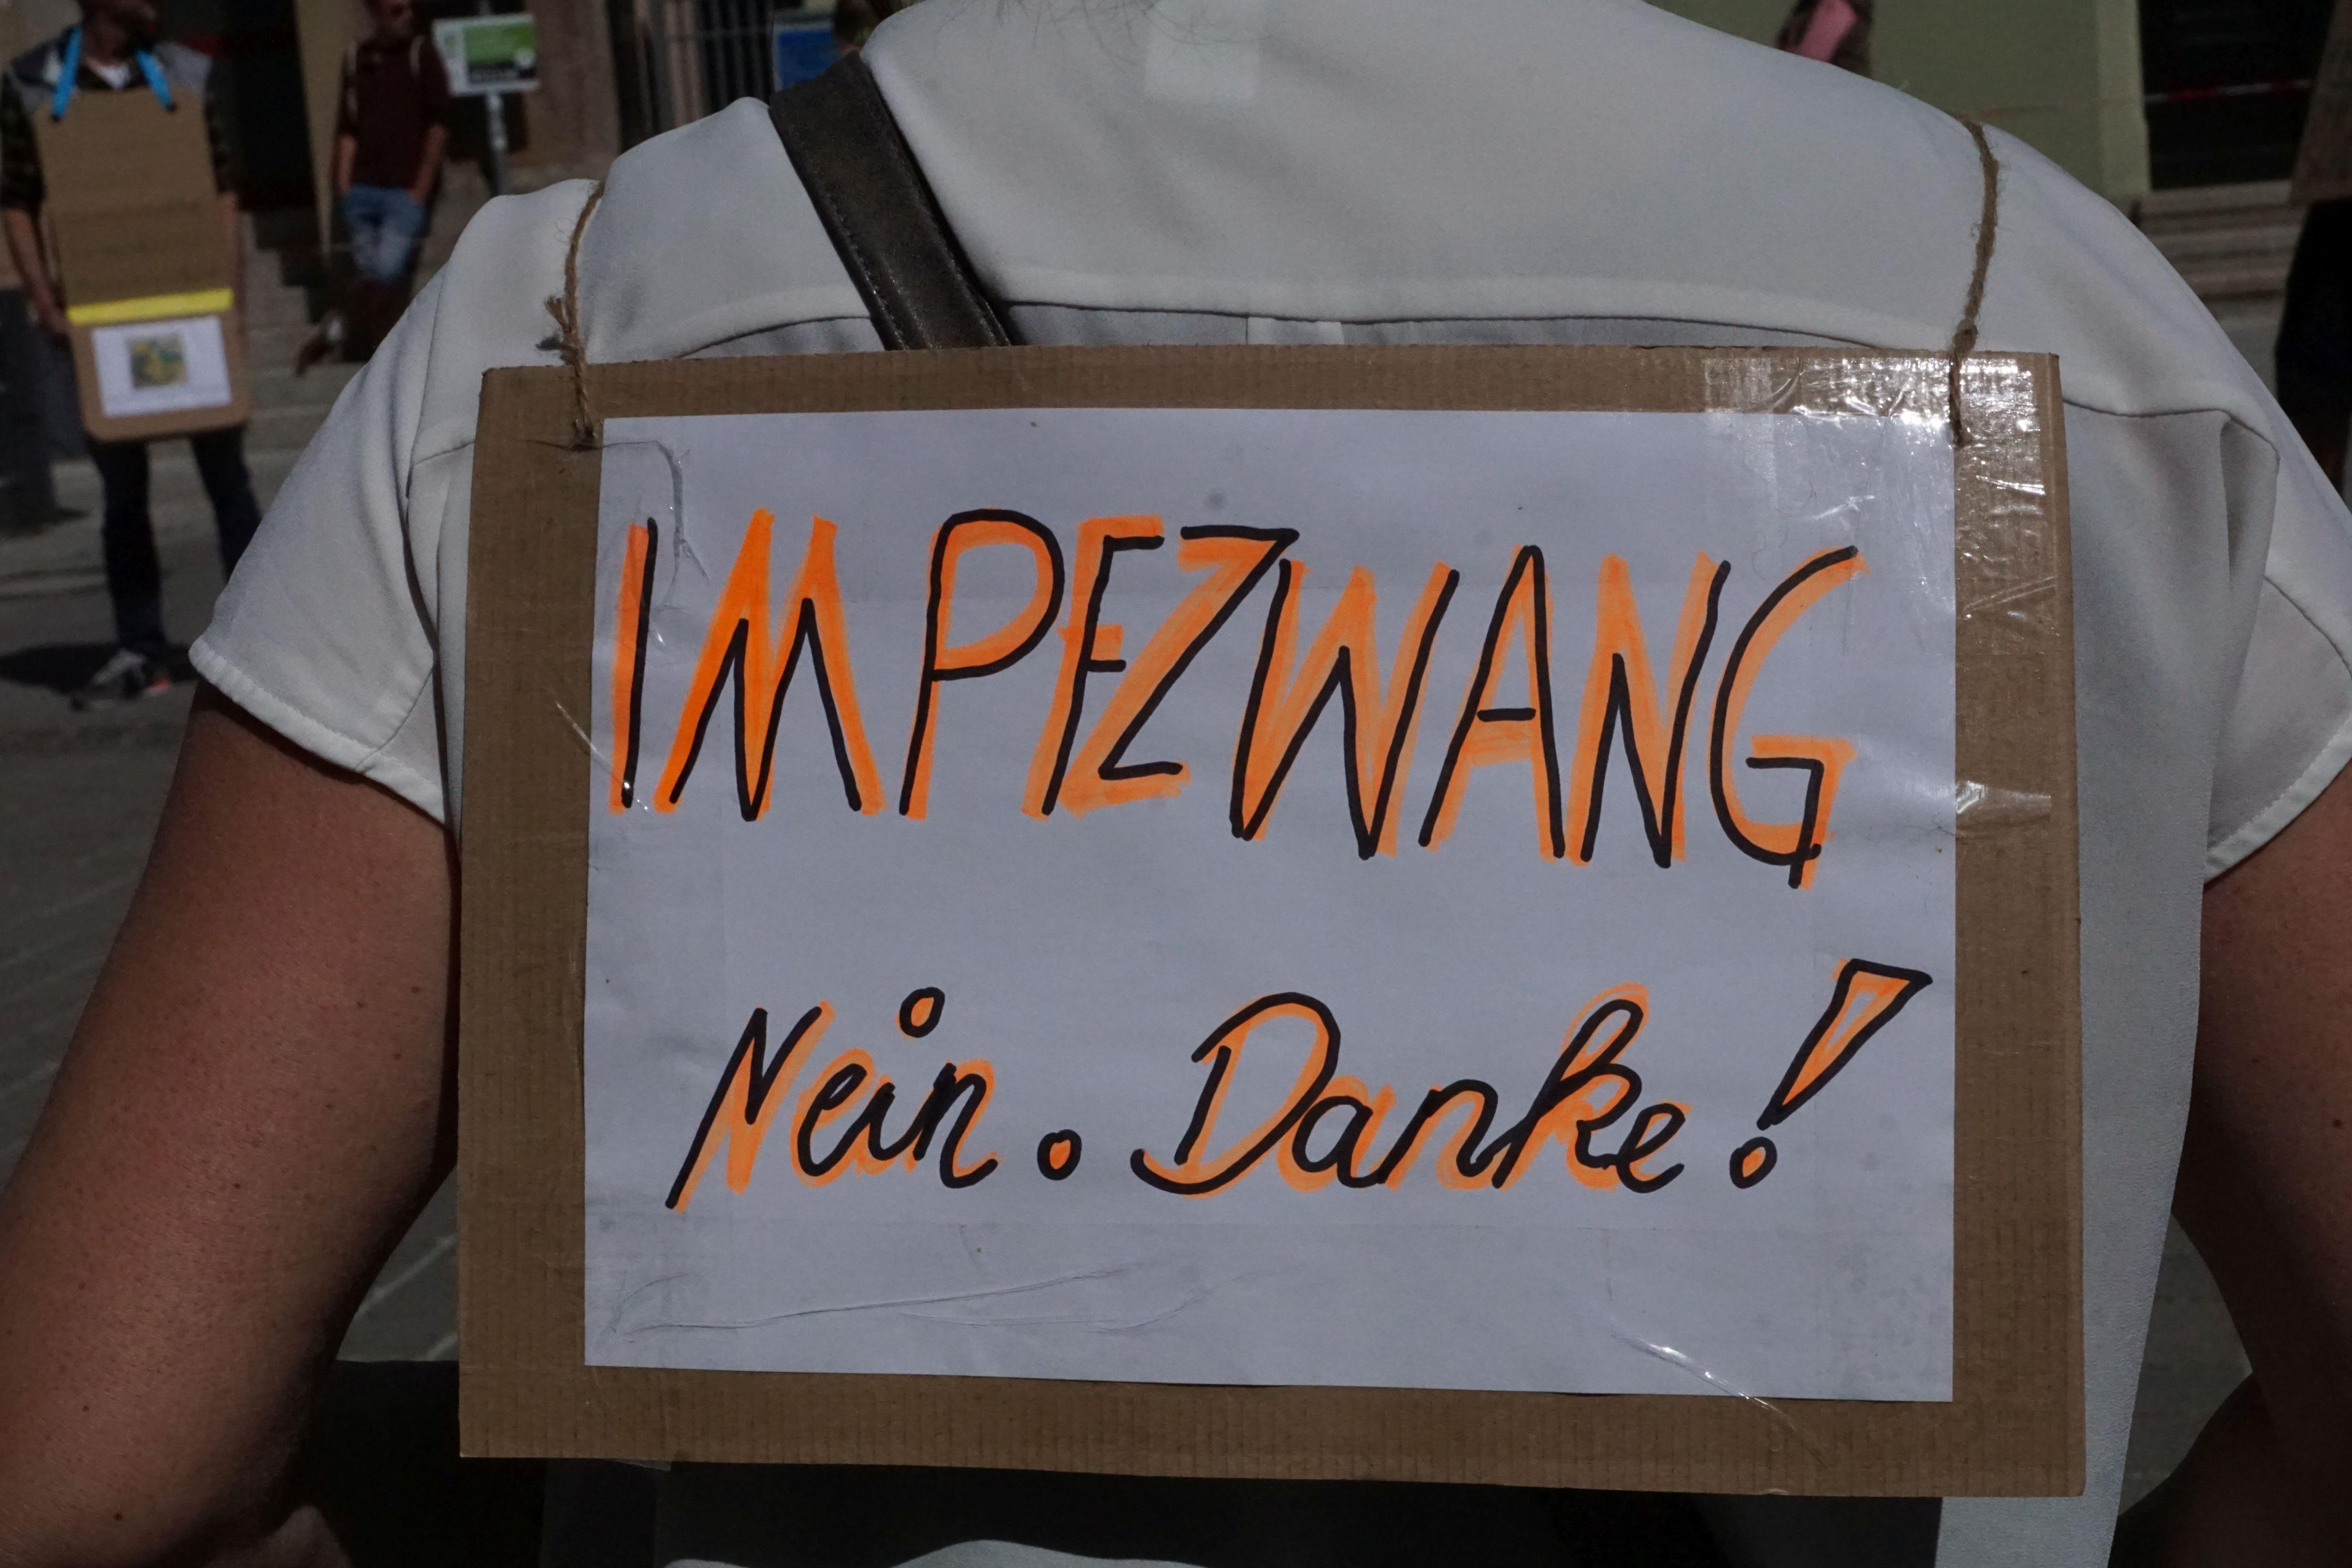 IMPFZWANG
Nein. Danke!